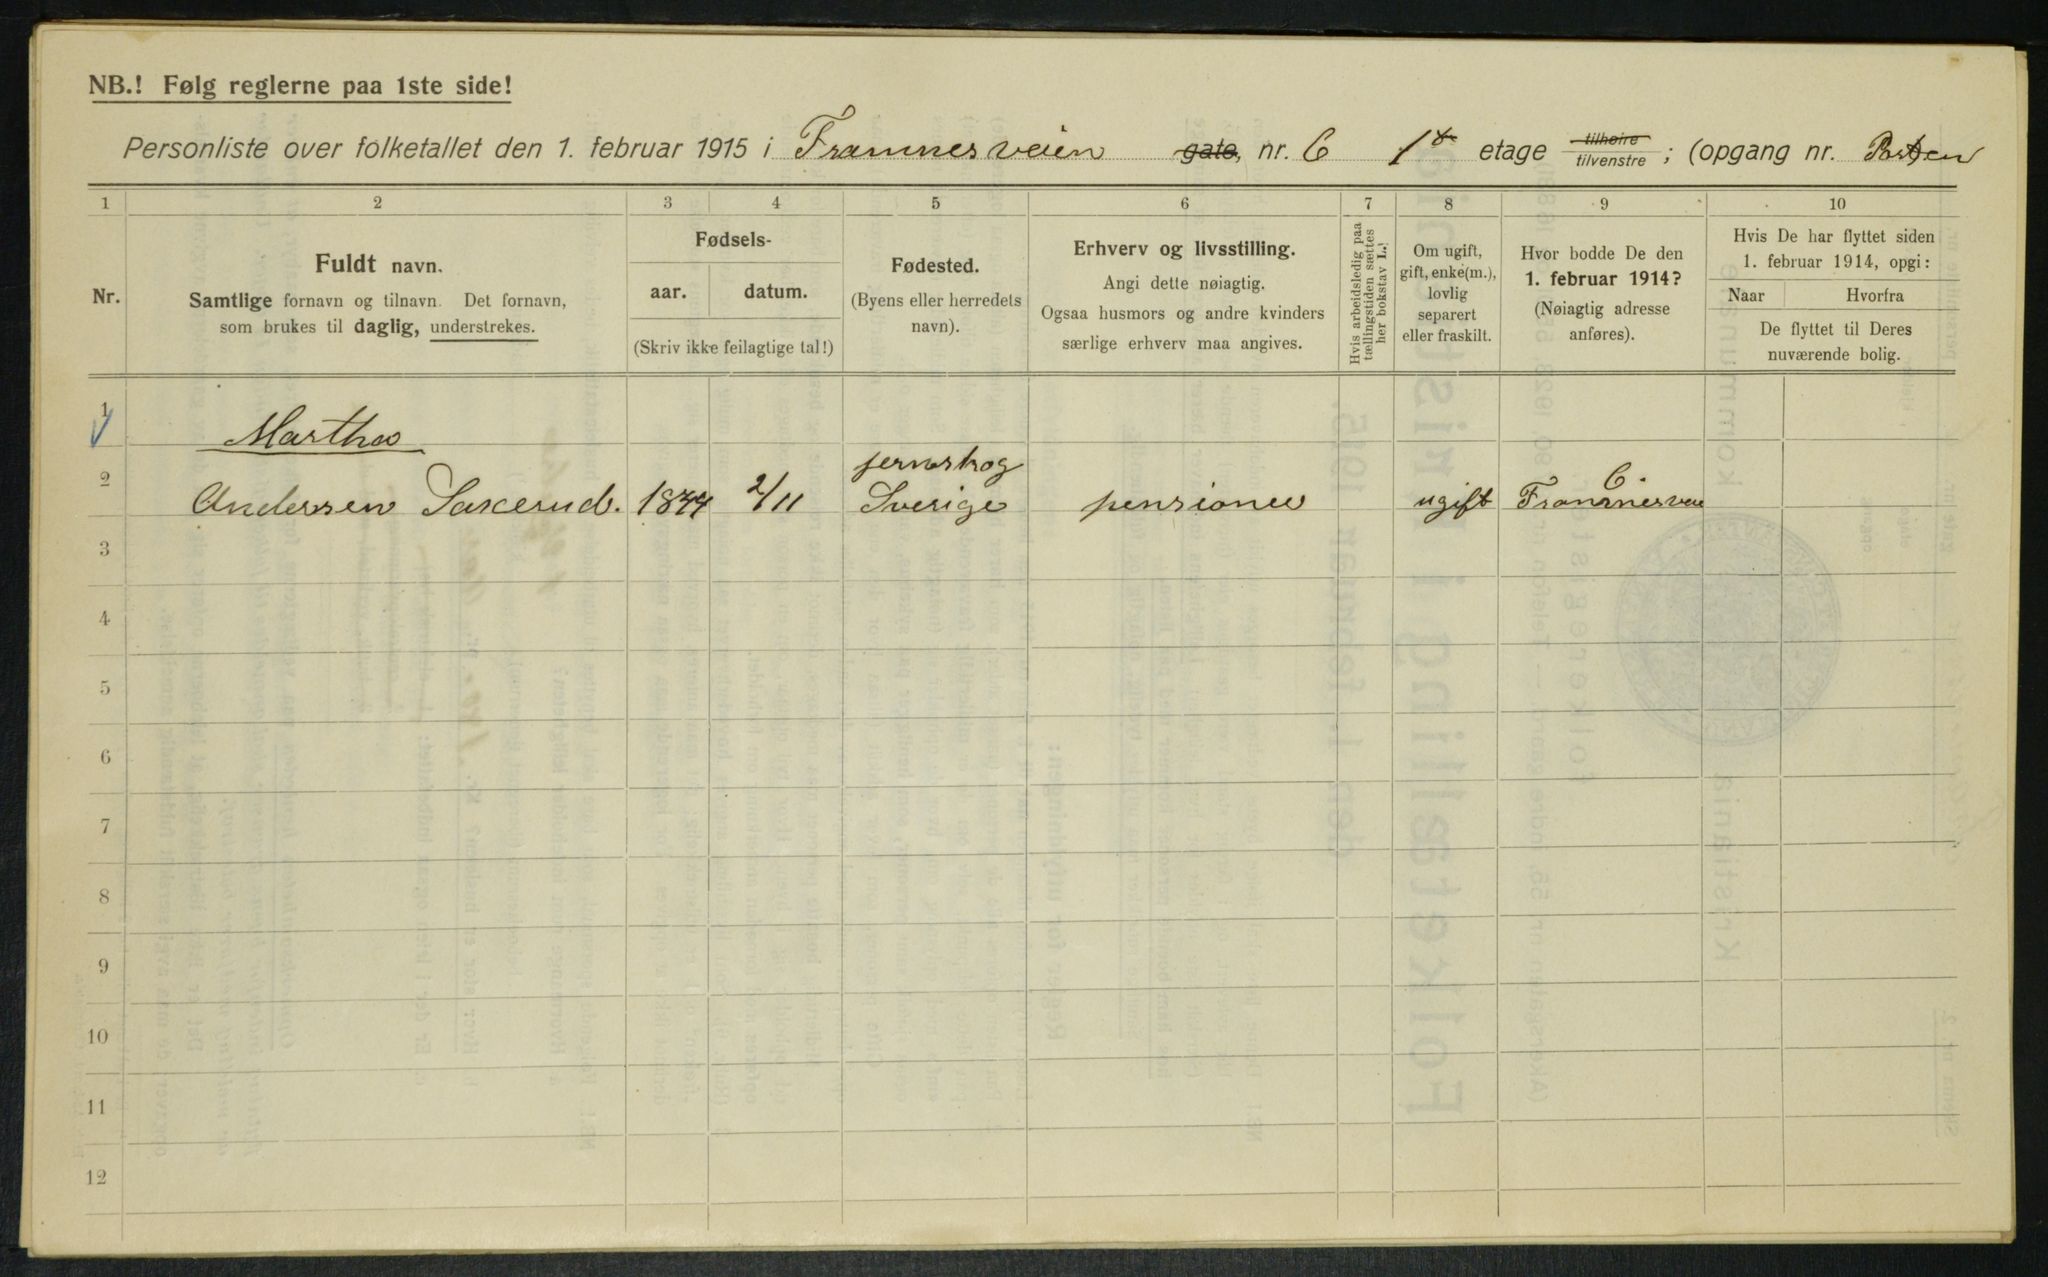 NB.! Følg reglerne paa 1ste side!
Personliste over folketallet den 1. februar 1915 i Framnesveien gate, nr. 6 1ste etage tilhøire tilvenstre ; (opgang nr. Porten
1 2 3 4 5 6 7 8 9 10
Nr.
Fuldt navn.
Samtlige fornavn og tilnavn. Det fornavn,
som brukes til daglig, understrekes.
Fødsels-
aar. datum.
(Skriv ikke feilagtige tal!)
Fødested.
(Byens eller herredets
navn).
Erhverv og livsstilling.
Angi dette nøiagtig.
Ogsaa husmors og andre kvinders
særlige erhverv maa angives.
Hvis arbeidsledig paa
tællingstiden sættes
her bokstav L.!
Om ugift,
gift, enke(m.),
lovlig
separert
eller fraskilt.
Hvor bodde De den
1. februar 1914?
(Nøiagtig adresse
anføres).
Hvis De har flyttet siden
1. februar 1914, opgi:
Naar Hvorfra
De flyttet til Deres
nuværende bolig.
1 Martha
2 Anderssen Saxerud. 2/11 jernskog Sverige ugift 6 Framnesveie
3
4
5
6
7
8
9
10
11
12